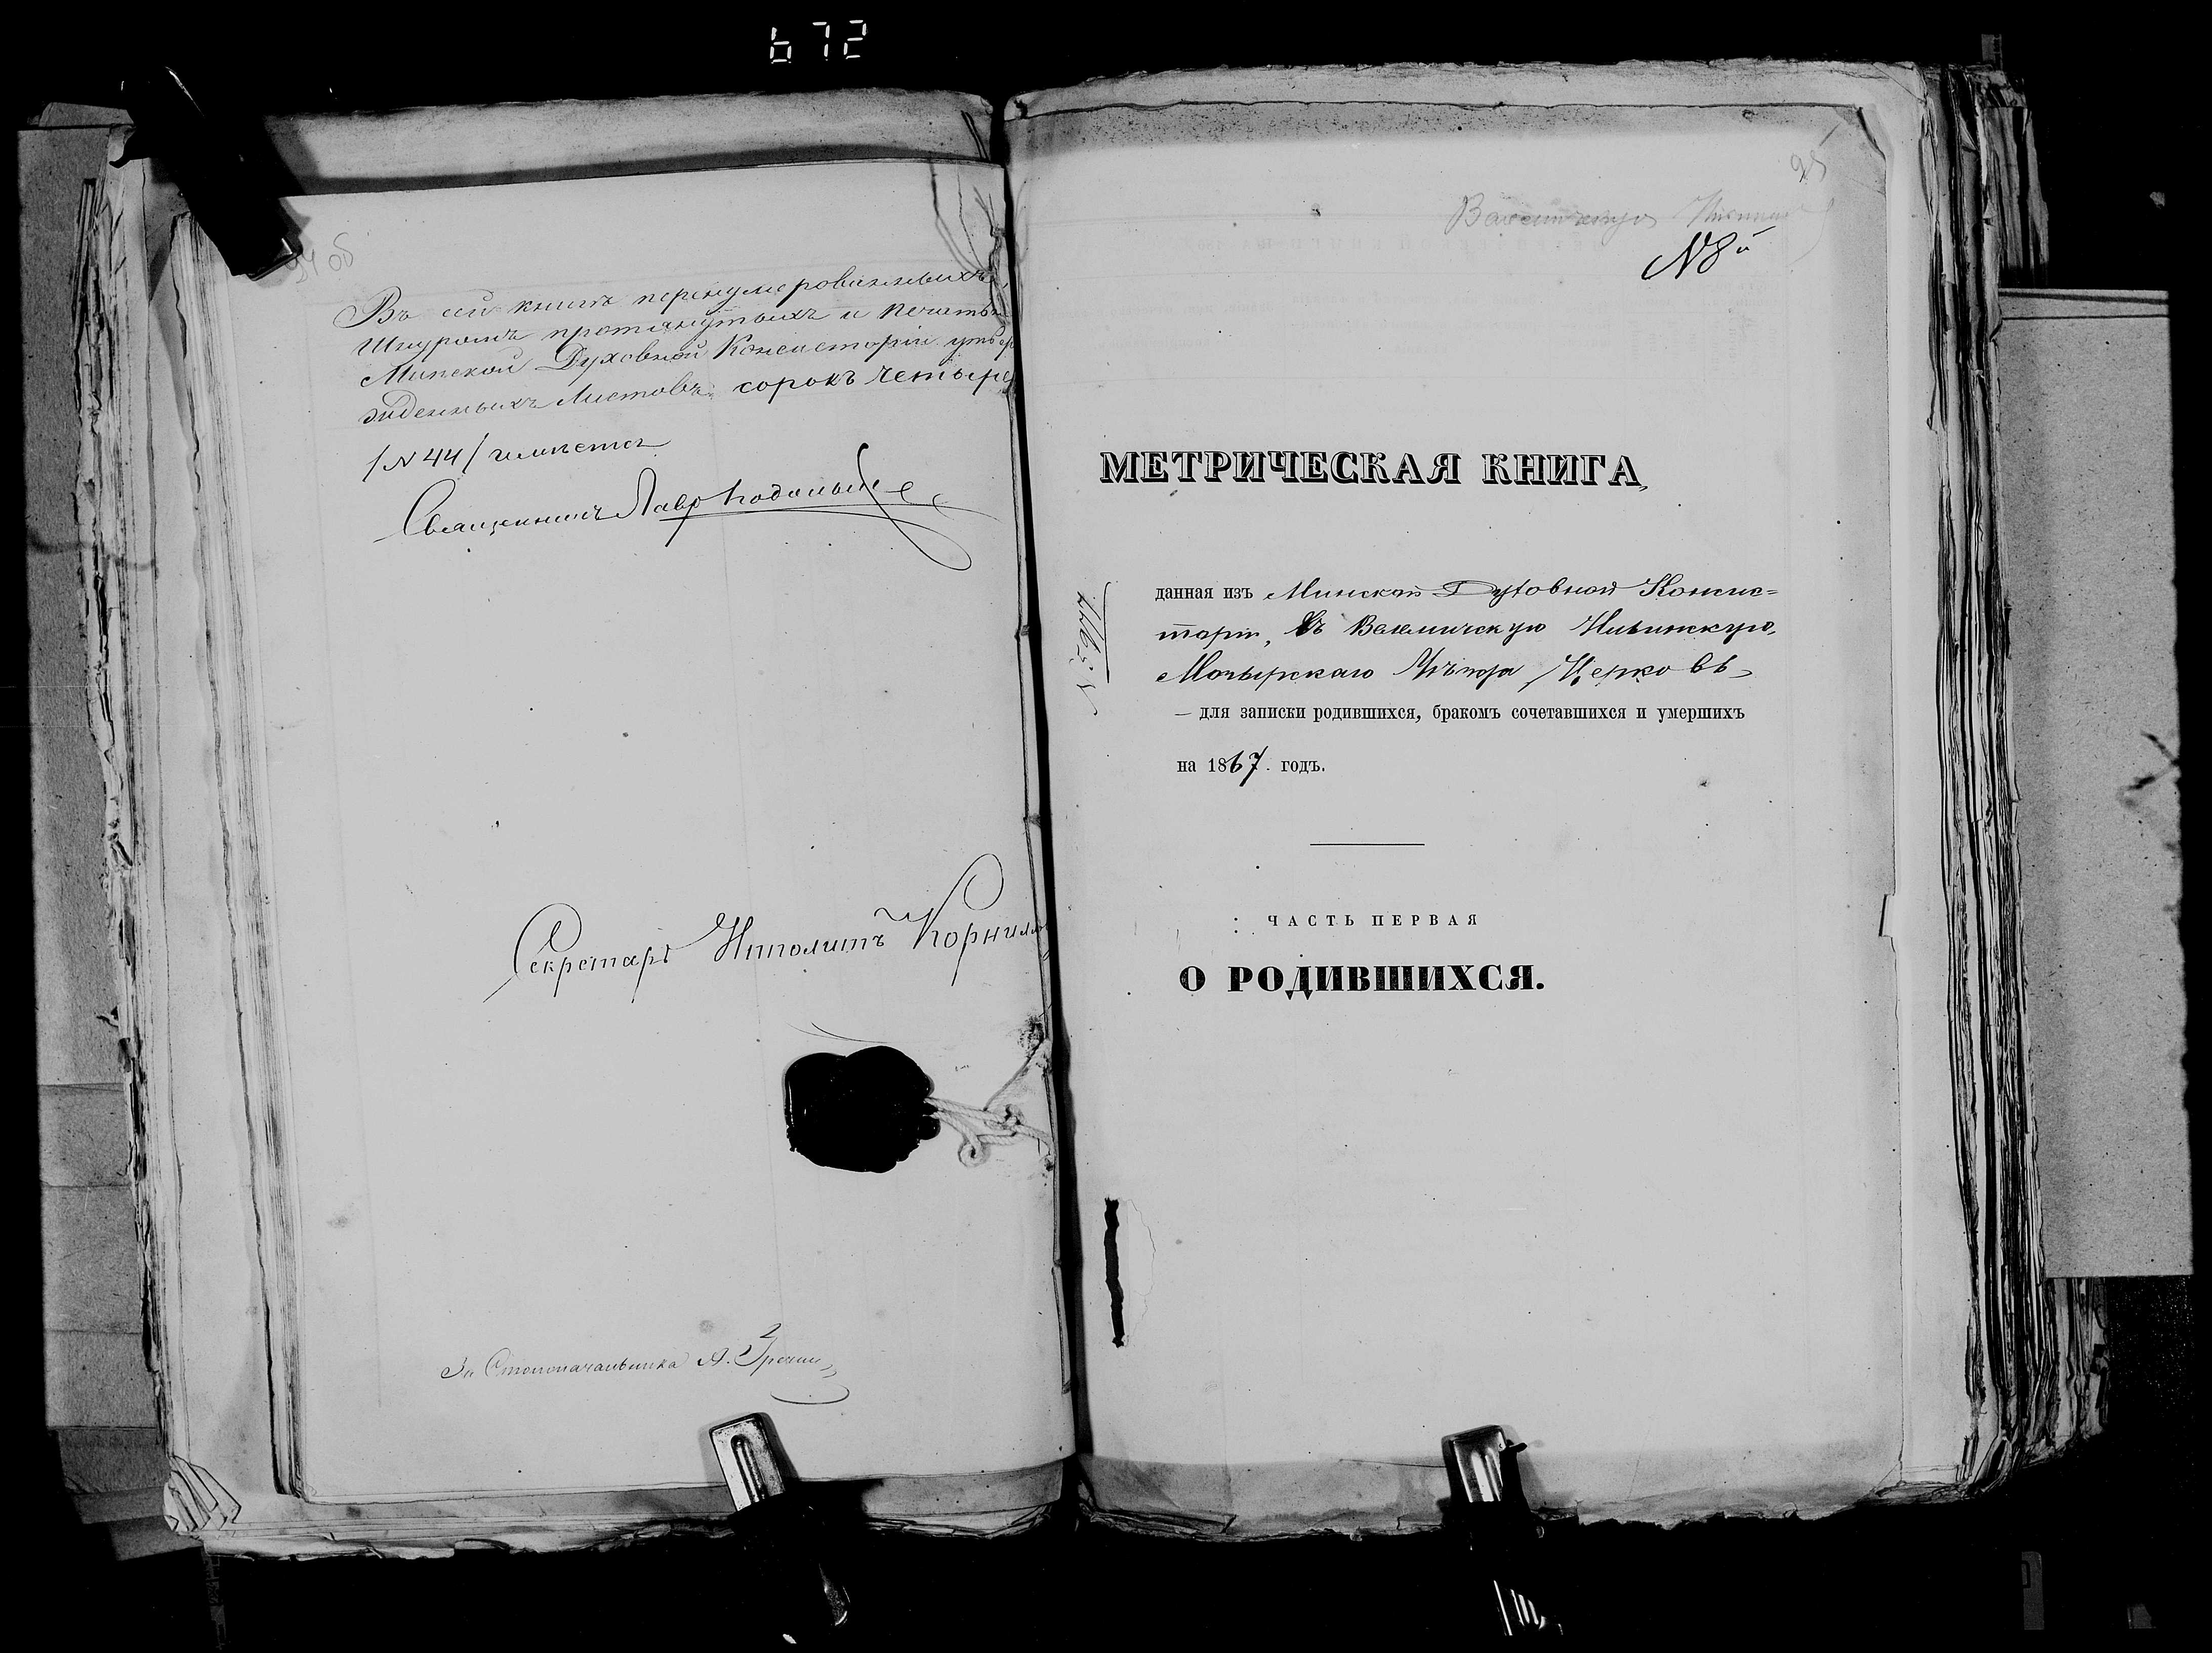 672
94 об
Въ сей книгѣ перенумерованныхъ,
шнуромъ протянутыхъ и печатью
Минской Духовной Консисторіи утвер
жденныхъ листовъ сорокъ четыре
/N 44/ числится
Священникъ Лавр
Секретарь Ипполитъ Корнил
За Столоначальника А.
95
N 8й
МЕТРИЧЕСКАЯ КНИГА,
данная изъ Минской Духовной Консис=
торіи, въ
Мозырскаго Уѣзда Церковь
— для записки родившихся, бракомъ сочетавшихся и умершихъ
на 1867. годъ.
ЧАСТЬ ПЕРВАЯ
О РОДИВШИХСЯ.